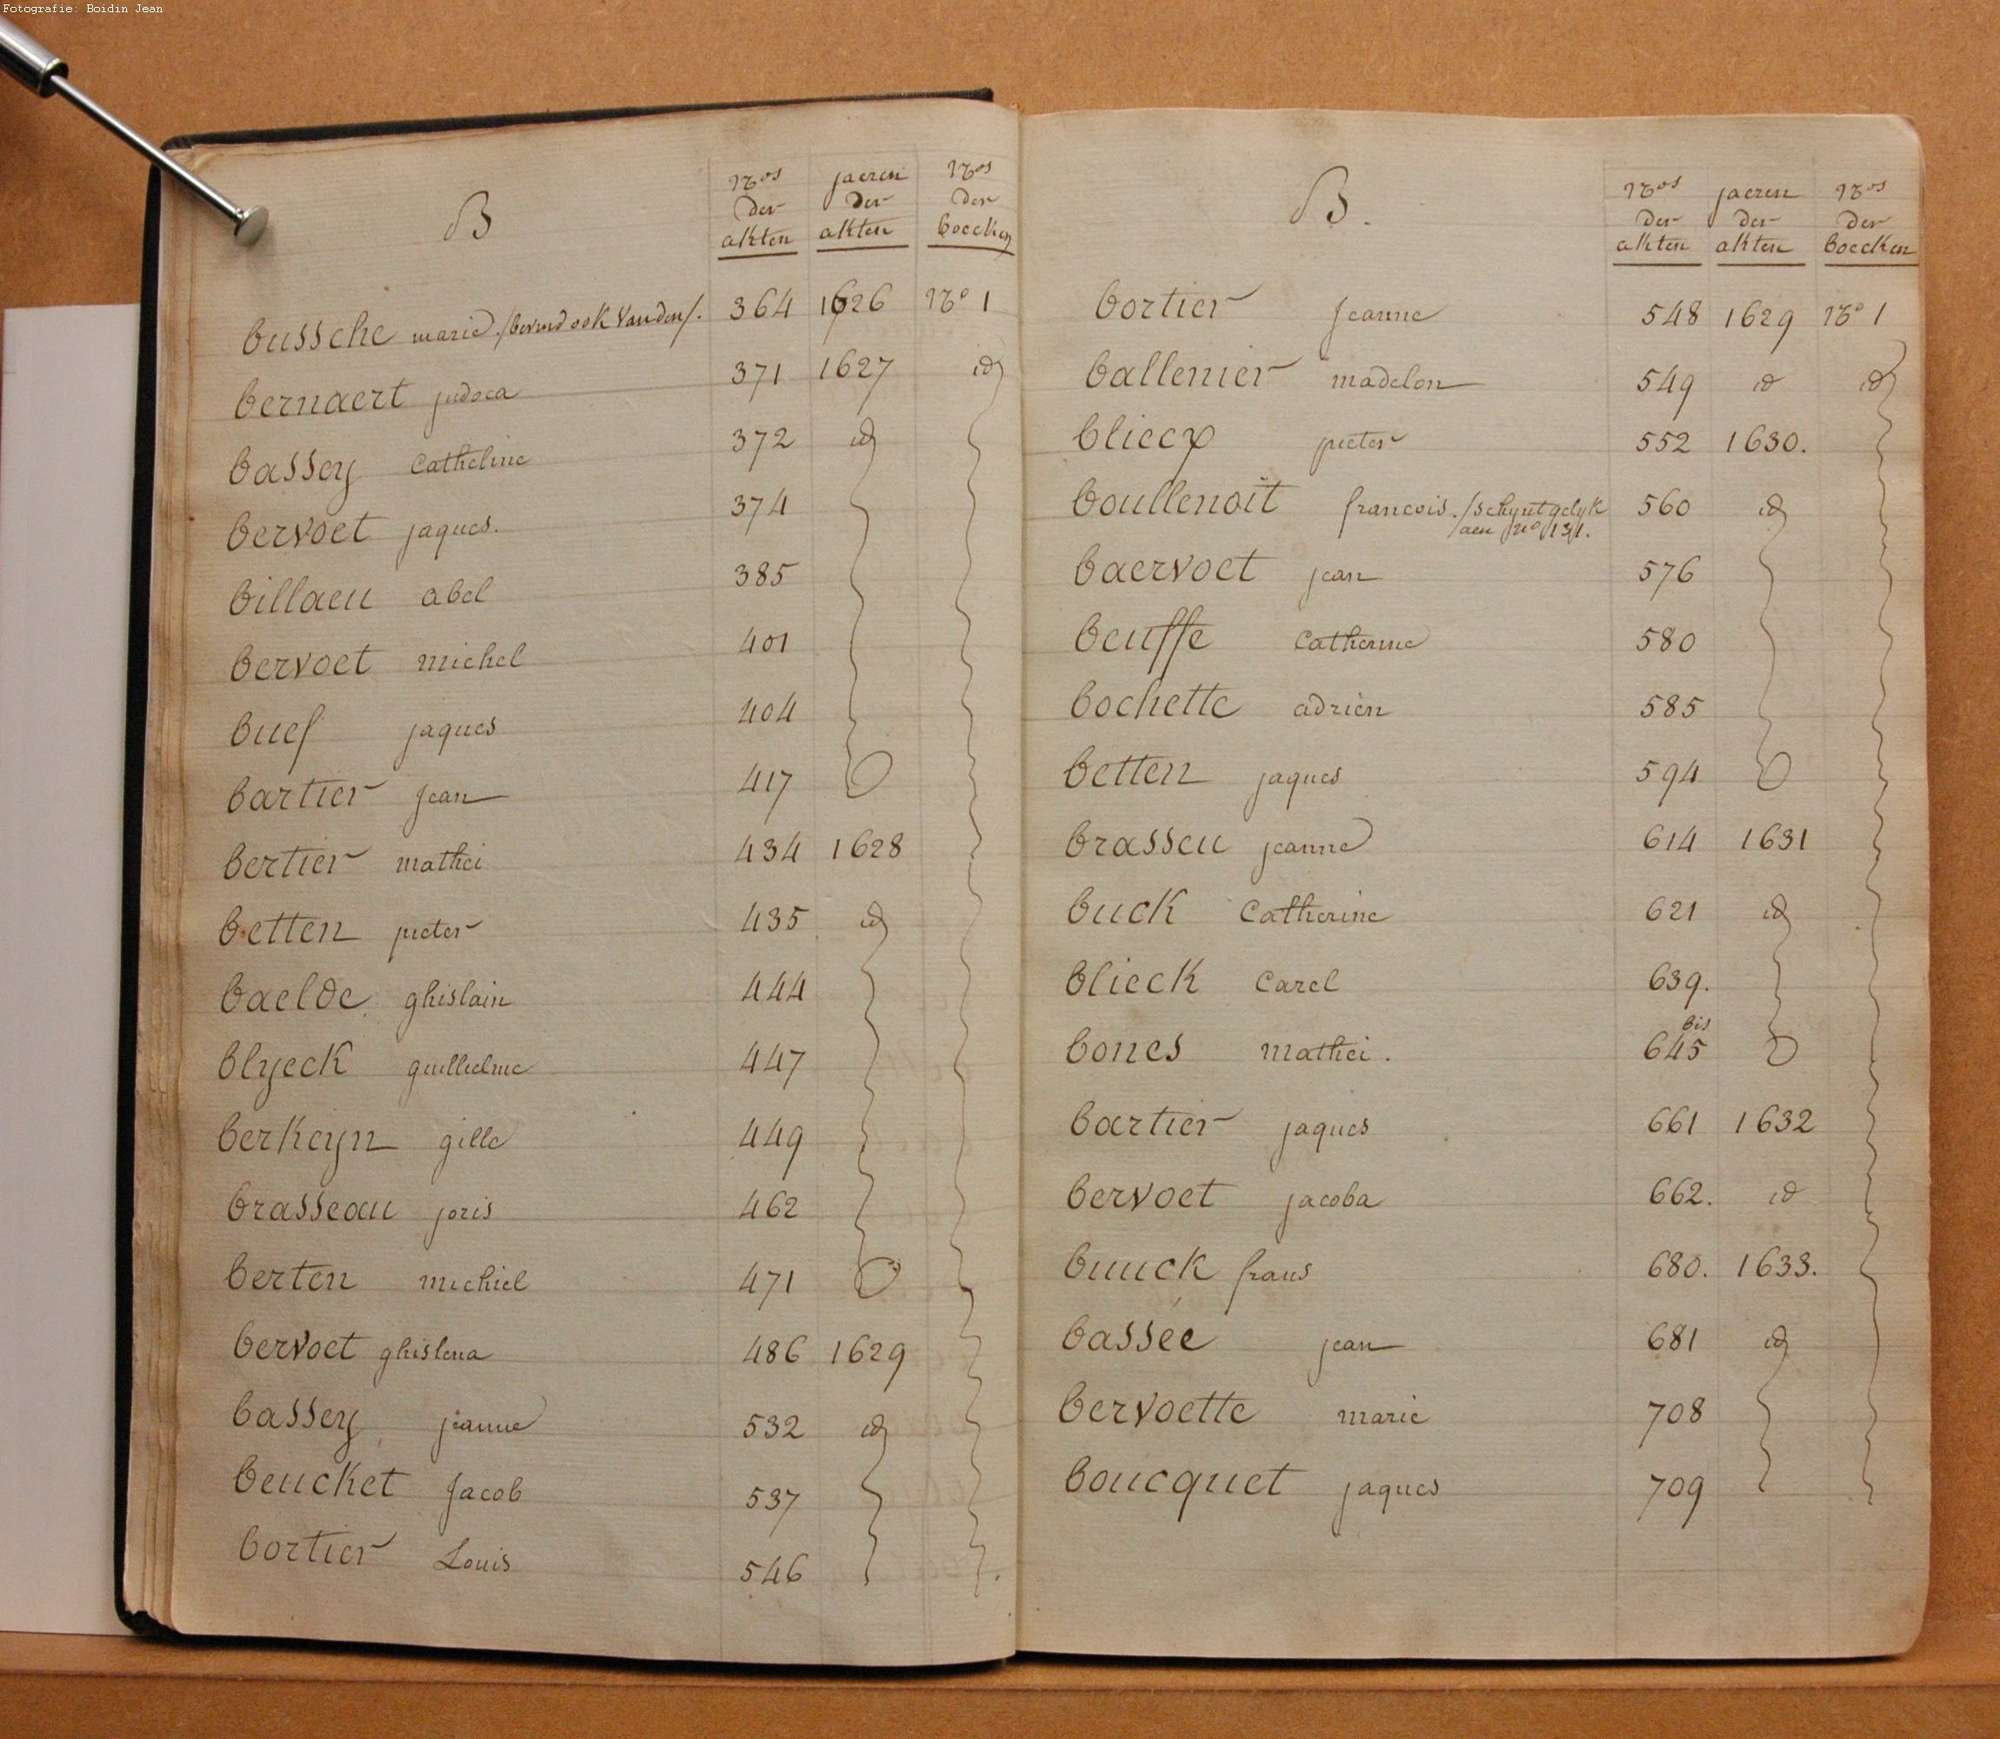 Fotografie: Boidin Jean
B
Nos der akten
jaeren der akten
Nos der boecken
bussche marie /bevind ook Vanden/. 364 1626 No 1
bernaert judoca 371 1627 id
bassey Catheline 372 id
bervoet jaques. 374
billaeu abel 385
bervoet michel 401
buef jaques 404
bartier jean 417
bertier mathei 434 1628
betten pieter 435 id
baelde ghislain 444
blyeck guillielme 447
berkeyn gille 449
brasseau joris 462
berten michiel 471
bervoet ghislena 486 1629
bassey jeanne 532 id
beucket Jacob 537
bortier Louis 546
B.
Nos der akten
jaeren der akten
Nos der boecken
bortier Jeanne 548 1629 No 1
ballenier madelon 549 id id
bliecq pieter 552 1630.
boullenoit francois. /schynt gelyk 560 id
/aen No 131.
baervoet jean 576
beuffe Catherine 580
bochette adrien 585
betten jaques 594
brasseu jeanne 614 1631
buck Catherine 621 id
blieck Carel 639.
bones mathei. 645 bis
bartier jaques 661 1632
bervoet jacoba 662. id
buuck frans 680. 1633.
bassée jean 681 id
bervoette marie 708
boucquet jaques 709